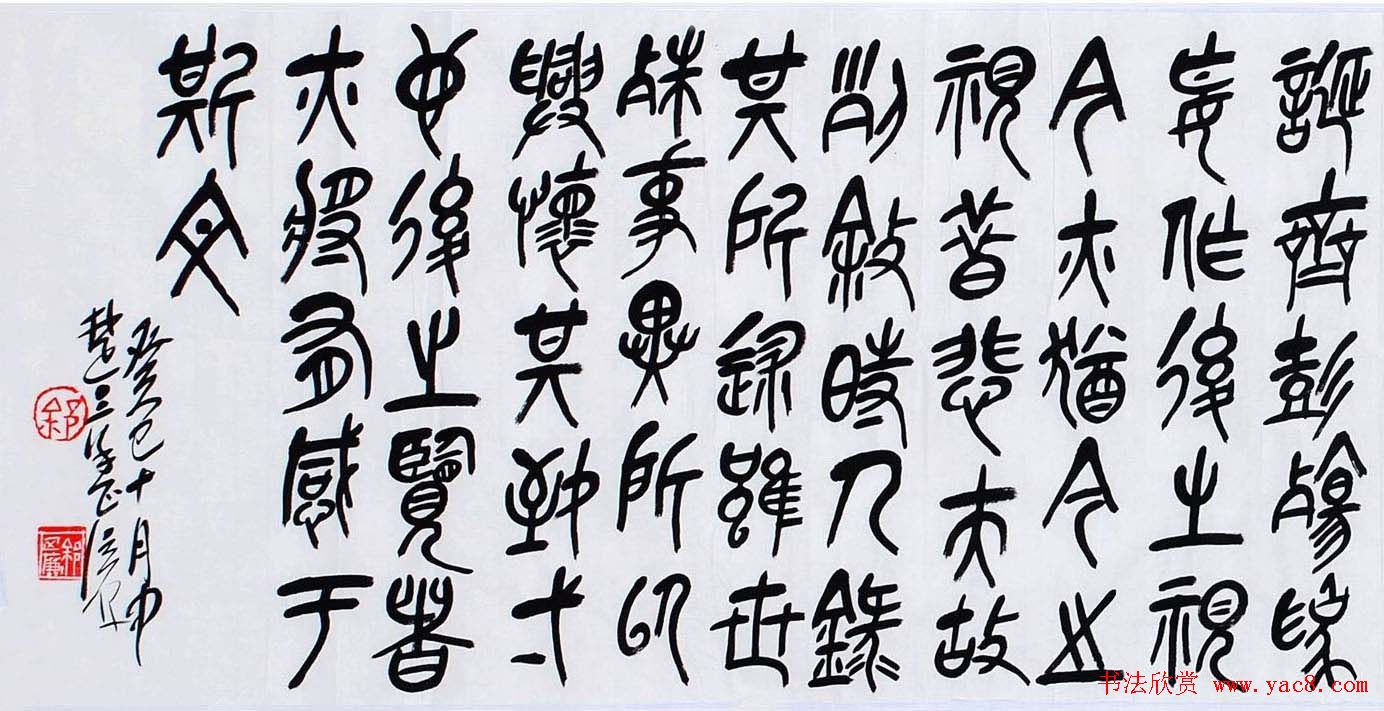 誕齊彭殤為
妄作後之視
今亦猶今之
視昔悲夫故
列敘時人錄
其所述雖世
殊事異所以
興懷其致一
也後之覽者
亦將有感于
斯文
癸巳十月中
书法欣赏 www.yac8.com